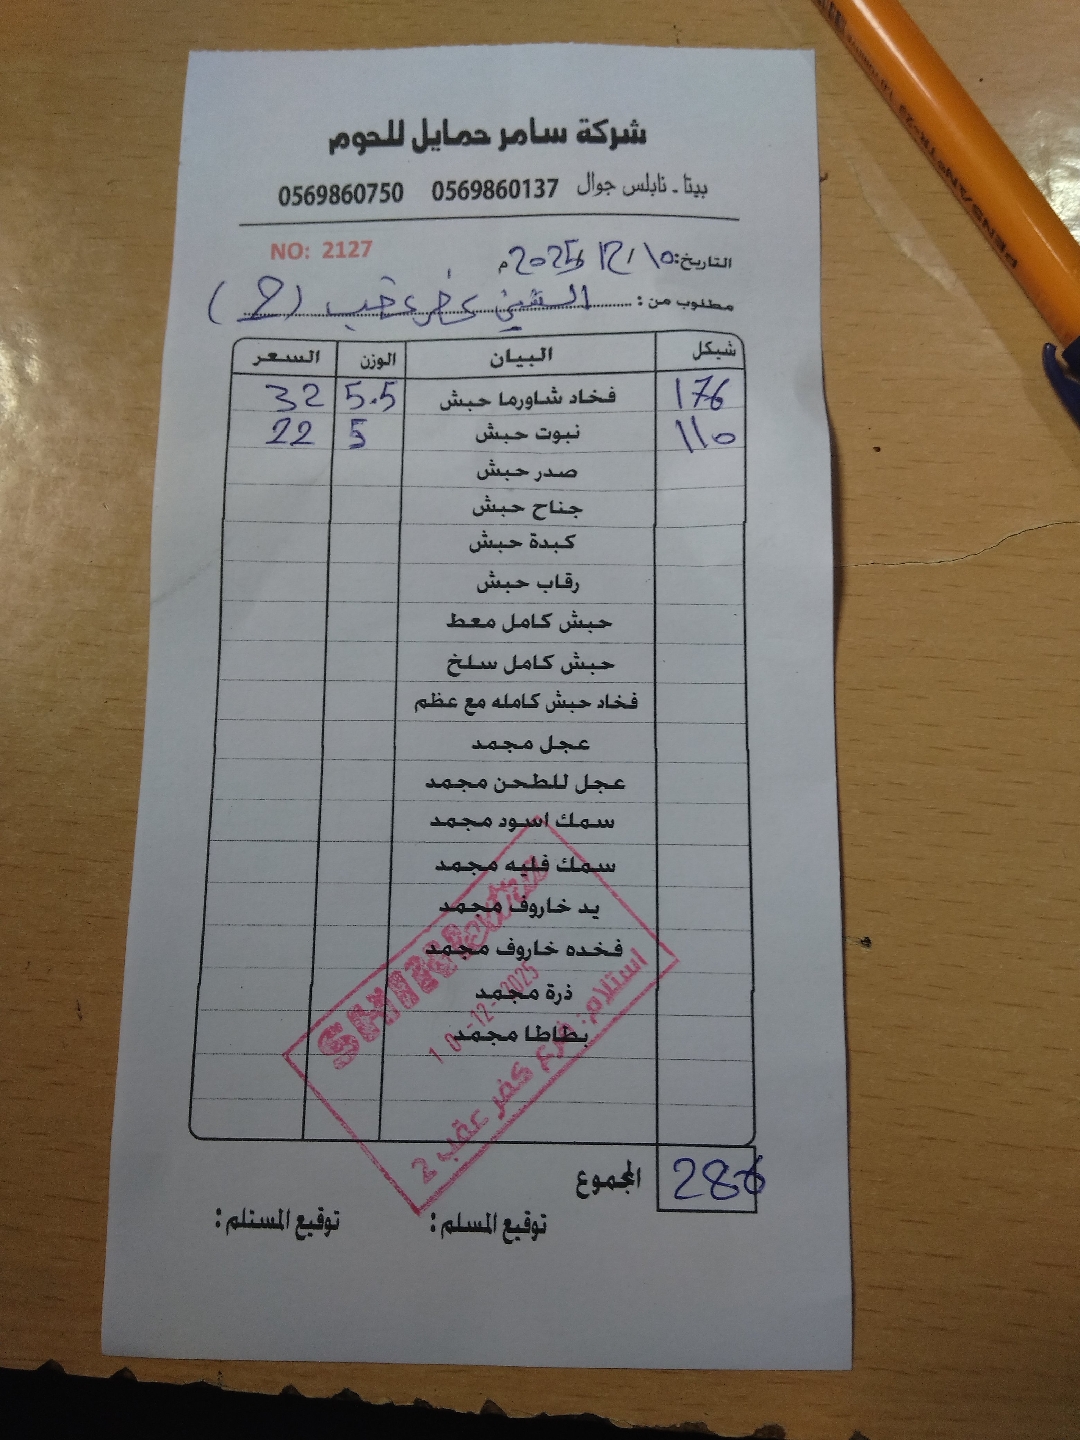 شركة سامر حمايل للحوم
بيتا - نابلس جوال 0569860137 0569860750
NO: 2127
التاريخ: 10/12/2025م
مطلوب من: الشني كفر عقب (2)
شيكل البيان الوزن السعر
176 فخاد شاورما حبش 5.5 32
110 نبوت حبش 5 22
صدر حبش
جناح حبش
كبدة حبش
رقاب حبش
حبش كامل معط
حبش كامل سلخ
فخاد حبش كامله مع عظم
عجل مجمد
عجل للطحن مجمد
سمك اسود مجمد
سمك فليه مجمد
يد خاروف مجمد
فخده خاروف مجمد
ذرة مجمد
بطاطا مجمد
10-12-2025
استلام: فرع كفر عقب 2
المجموع 286
توقيع المسلم :
توقيع المستلم :